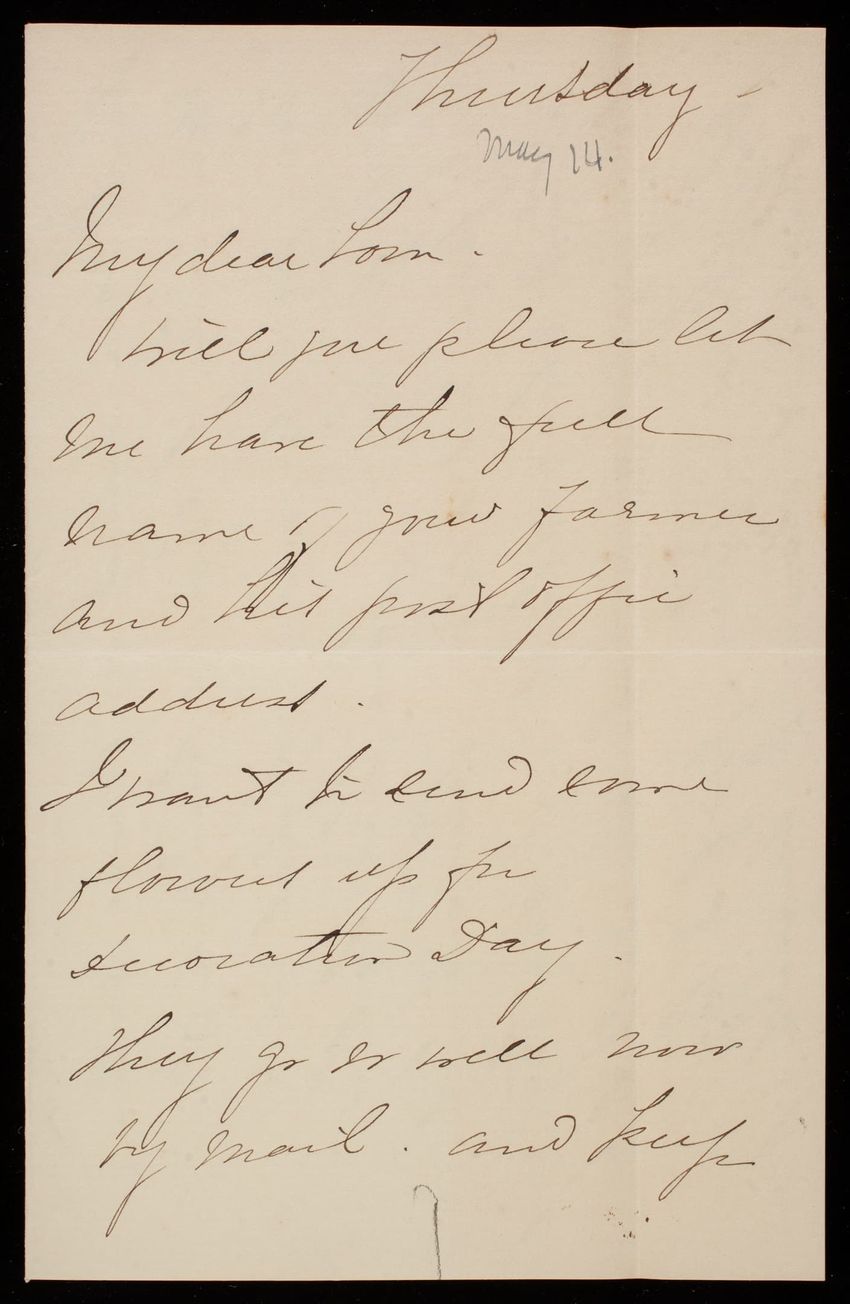 Thursday -
May 14.
My dear Tom -
Will you please let
me have the full
name of your farmer
and his post office
address.
I want to send some
flowers up for
Decoration Day.
They go so well now
by mail. and keep